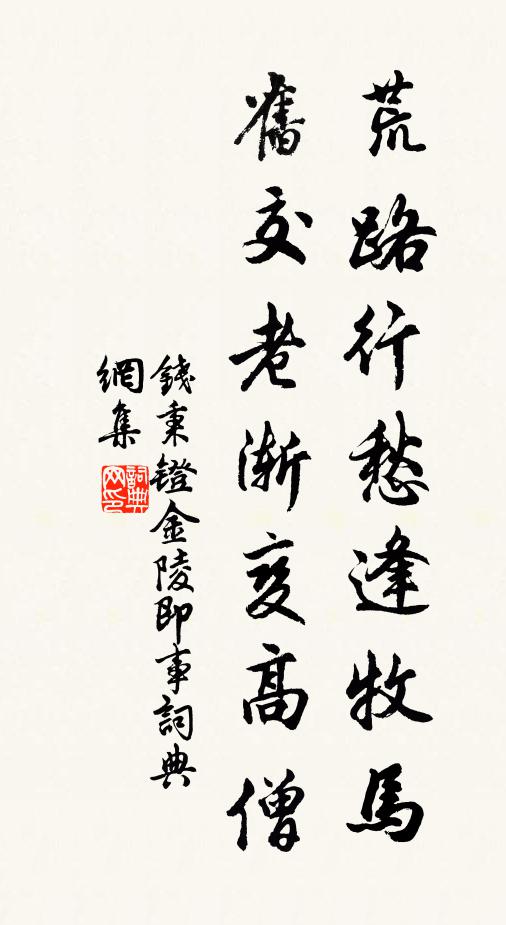 荒路行愁逢牧馬
舊交老漸變高僧
錢秉鐙金陵即事詞典
網集
詞典网印